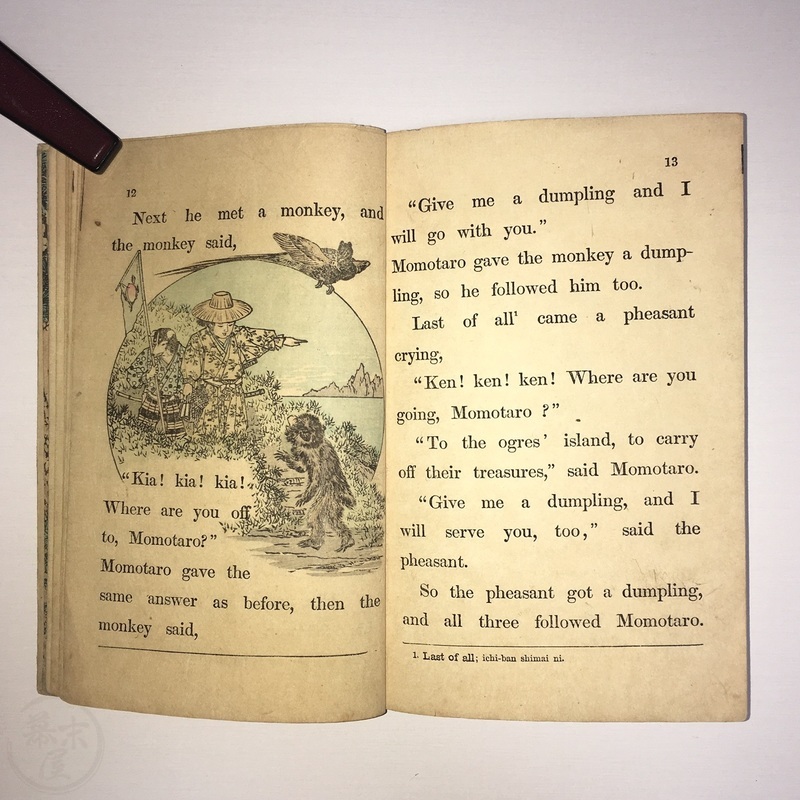 12
Next he met a monkey, and
the monkey said,
"Kia! kia! kia!
Where are you off
to, Momotaro?"
Momotaro gave the
same answer as before, then the
monkey said,
13
"Give me a dumpling and I
will go with you."
Momotaro gave the monkey a dump-
ling, so he followed him too.
Last of all¹ came a pheasant
crying,
"Ken! ken! ken! Where are you
going, Momotaro ?"
"To the ogres' island, to carry
off their treasures," said Momotaro.
"Give me a dumpling, and I
will serve you, too," said the
pheasant.
So the pheasant got a dumpling,
and all three followed Momotaro.
1. Last of all; ichi-ban shimai ni.
幕末屋